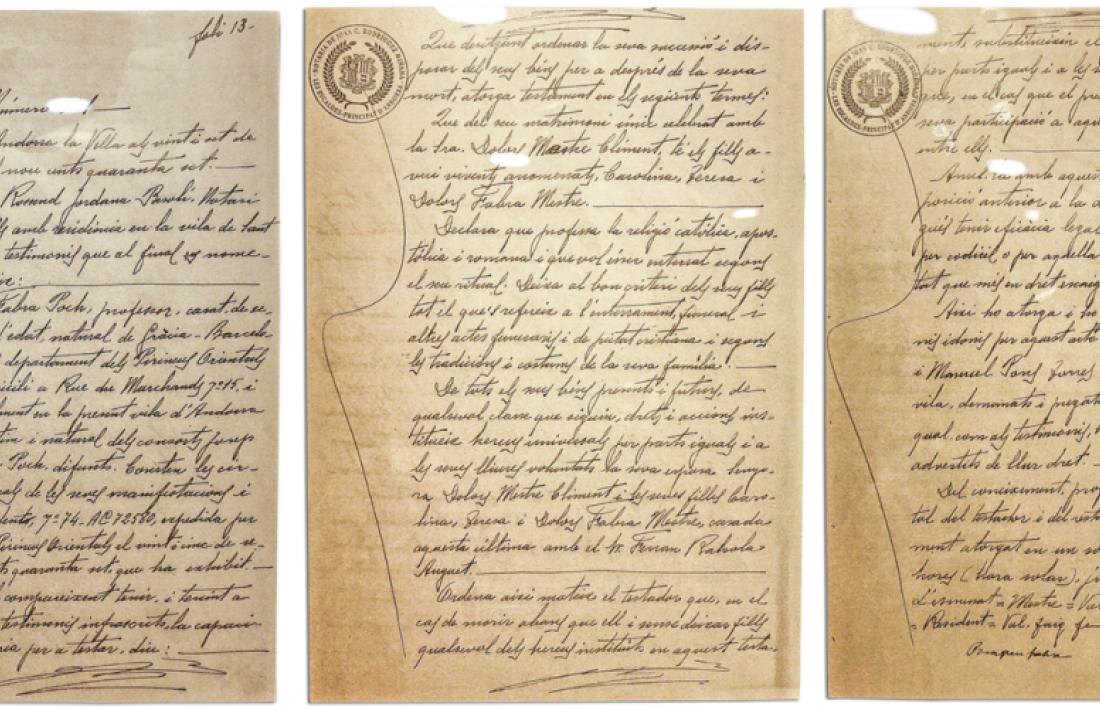 foli 13-
Número
Andorra la Vella als vint i set de
nou cents quaranta set. —
Rossend Jordana Besolí, Notari
amb residència en la vila de Sant
testimonis que al final es nome-
Fabra Poch, professor, casat, de se-
d'edat, natural de Gràcia - Barcelo
departament dels Pirineus Orientals
a Rue du Marchands, nº 15, i
en la present vila d'Andorra
i natural dels consorts Josep
Poch, difunts. Consten les cir-
de les seves manifestacions i
nº 74-AC72580, expedida per
Pirineus Orientals el vint i cinc de se-
quaranta set, que ha exhibit. —
compareixent tenir, i tenint a
testimonis infrascrits, la capaci-
per a testar, diu: —
NOTARIA DE JOAN C. RODRÍGUEZ MIÑANA
LES ESCALDES-PRINCIPAT D'ANDORRA
Que desitjant ordenar la seva successió i dis-
posar dels seus béns per a després de la seva
mort, atorga testament en els següents termes:
Que del seu matrimoni únic celebrat amb
la Sra. Dolors Mestre Climent, té els fills a-
vui vivents, anomenats, Carolina, Teresa i
Dolors Fabra Mestre. —
Declara que professa la religió catòlica, apos-
tòlica i romana i que vol ésser enterrat segons
el seu ritual. Deixa al bon criteri dels seus fills
tot el que's refereix a l'enterrament, funeral i
altres actes funeraris i de pietat cristiana i segons
les tradicions i costums de la seva família. —
De tots els seus béns presents i futurs, de
qualsevol classe que siguin, drets i accions ins-
titueix hereus universals per parts iguals i a
les seves lliures voluntats la seva esposa Senyo-
ra Dolors Mestre Climent i les seves filles Caro-
lina, Teresa i Dolors Fabra Mestre, casada
aquesta última amb el Sr. Ferran Rahola
Auguet. —
Ordena així mateix el testador que, en el
cas de morir abans que ell i sense deixar fills
qualsevol dels hereus instituïts en aquest testa-
NOTARIA DE JOAN C. RODRÍGUEZ MIÑANA
LES ESCALDES-PRINCIPAT D'ANDORRA
ment, substitueixin el
per parts iguals i a les
que, en el cas que el pre
seva participació a aque
entre ells. —
amb aques
posició anterior a la
tenir eficàcia legal
per codicil o per aquella
tat que més en dret
Així ho atorga i ho
nis idonis per aquest acte
i Manuel Pons Torres
vila, demanats i pregats
qual com als testimonis,
advertits de llur dret. —
Del coneixement, prof
tat del testador i del
ment atorgat en un so
hores (hora solar),
= Mestre = Val
= Resident = Val.
Pompeu Fabra